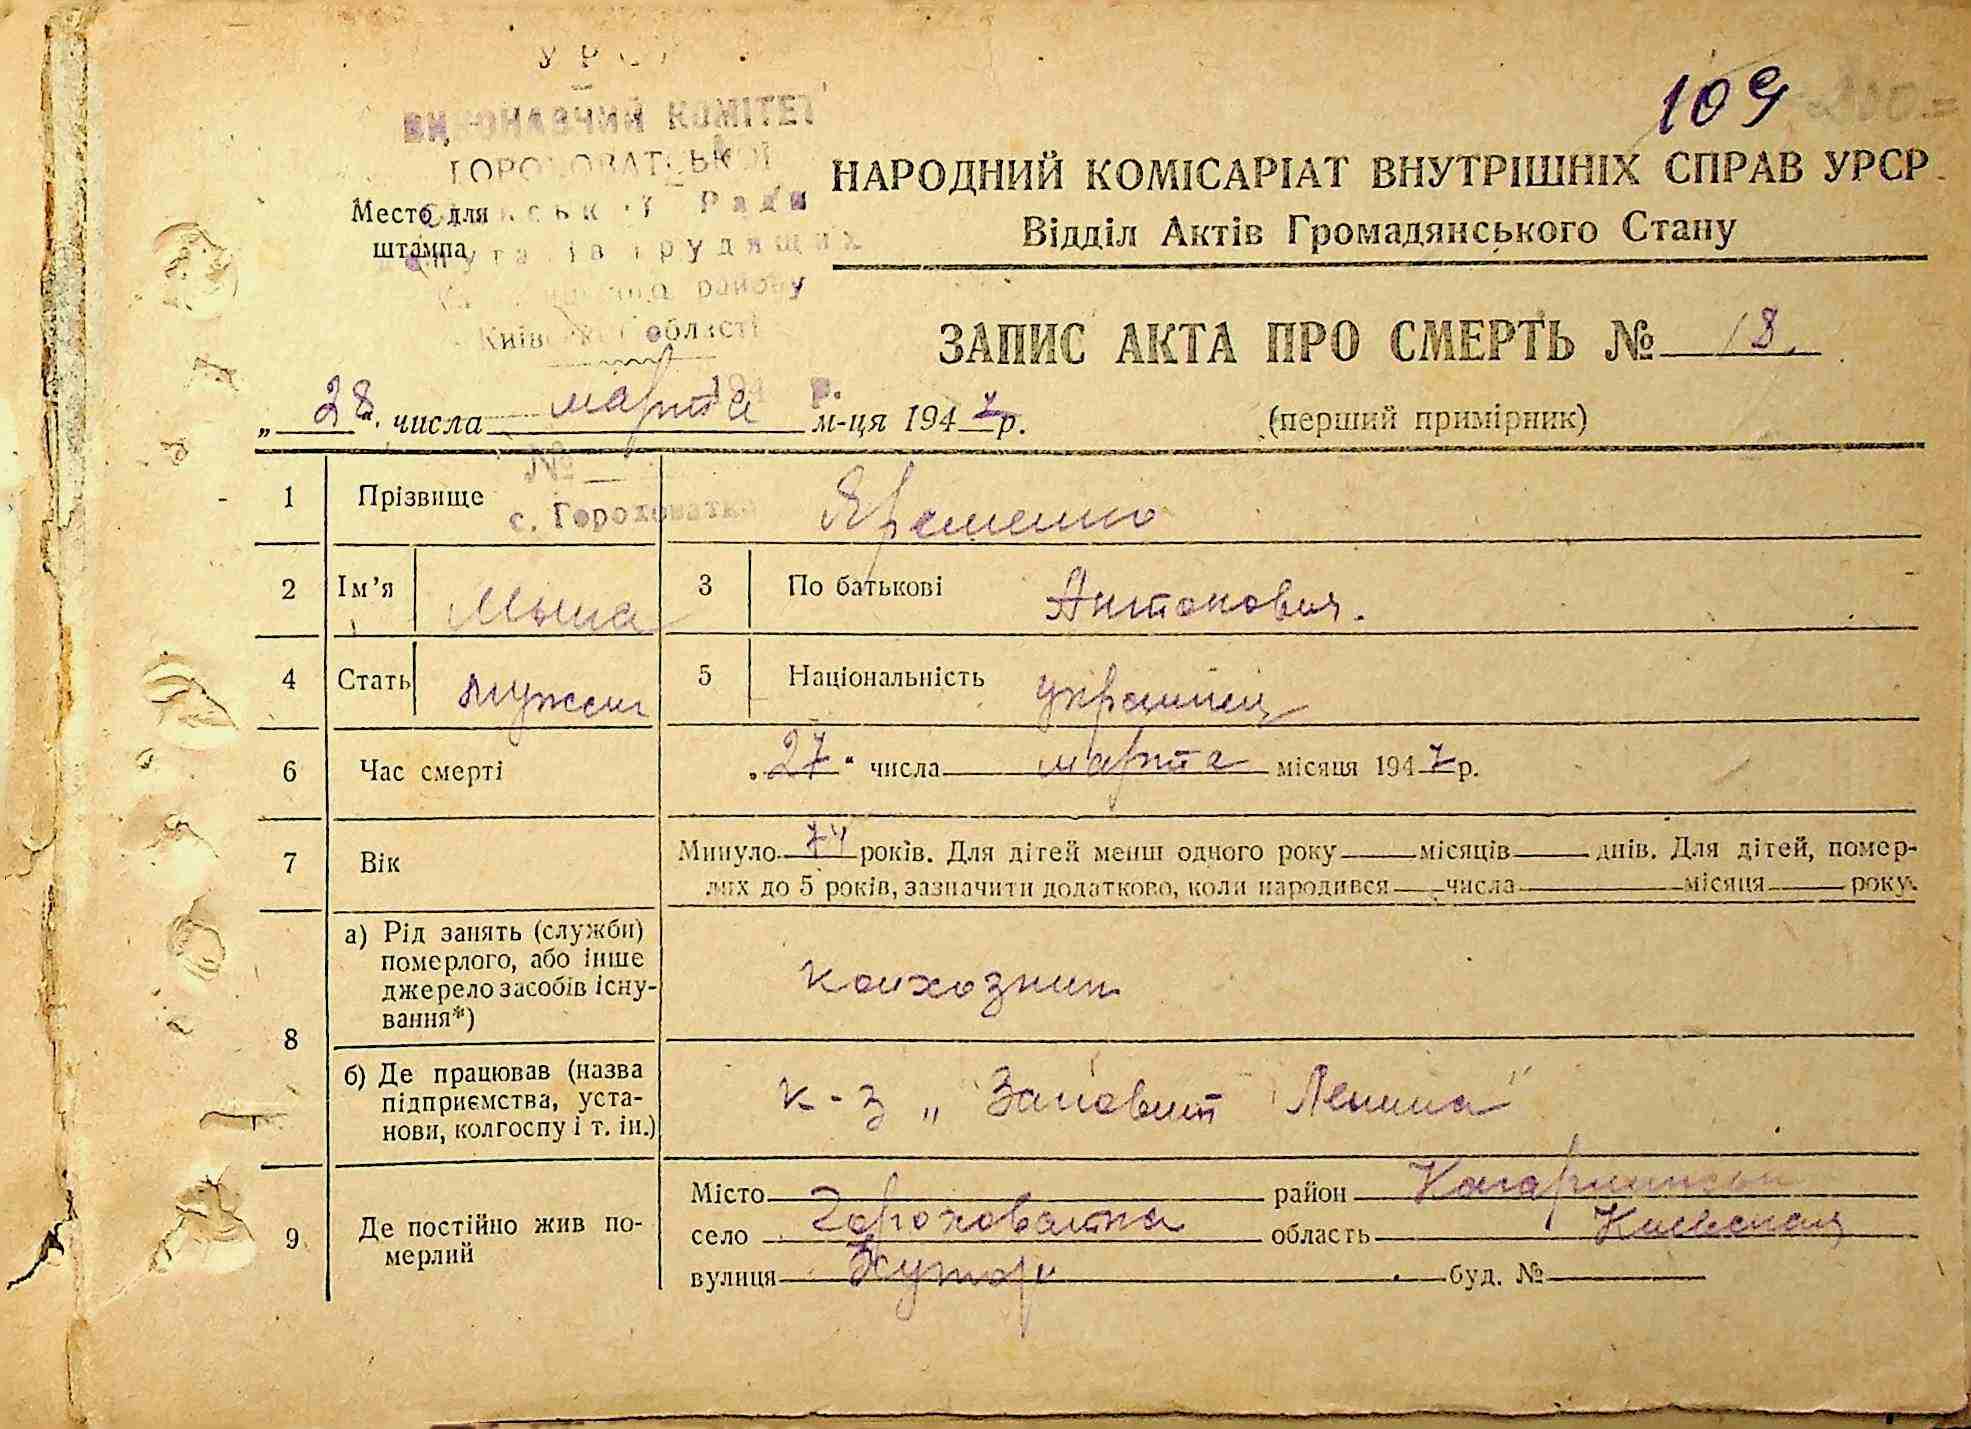 109
ВИКОНАВЧИЙ КОМІТЕТ
ГОРОХОВАТСЬКОЇ
Сільської Ради
депутатів трудящих
району
Київської області
194 р.
№
с. Гороховатка
Место для
штампа
НАРОДНИЙ КОМІСАРІАТ ВНУТРІШНІХ СПРАВ УРСР
Відділ Актів Громадянського Стану
ЗАПИС АКТА ПРО СМЕРТЬ № 18.
„28“ числа марта м-ця 1947 р. (перший примірник)
1 Прізвище Яременко
2 Ім’я 3 По батькові Антонович.
4 Стать мужск 5 Національність украинец
6 Час смерті „27“ числа марта місяця 1947 р.
7 Вік Минуло 74 років. Для дітей менш одного року місяців днів. Для дітей, помер-
лих до 5 років, зазначити додатково, коли народився числа місяця року.
8 а) Рід занять (служби)
померлого, або інше
джерело засобів існу-
вання*)
колхозник
б) Де працював (назва
підприємства, уста-
нови, колгоспу і т. ін.)
к-з „Заповит Ленина"
9 Де постійно жив по-
мерлий
Місто район Кагарлицкий
село Гороховатка область Киевская
вулиця Хутор буд. №